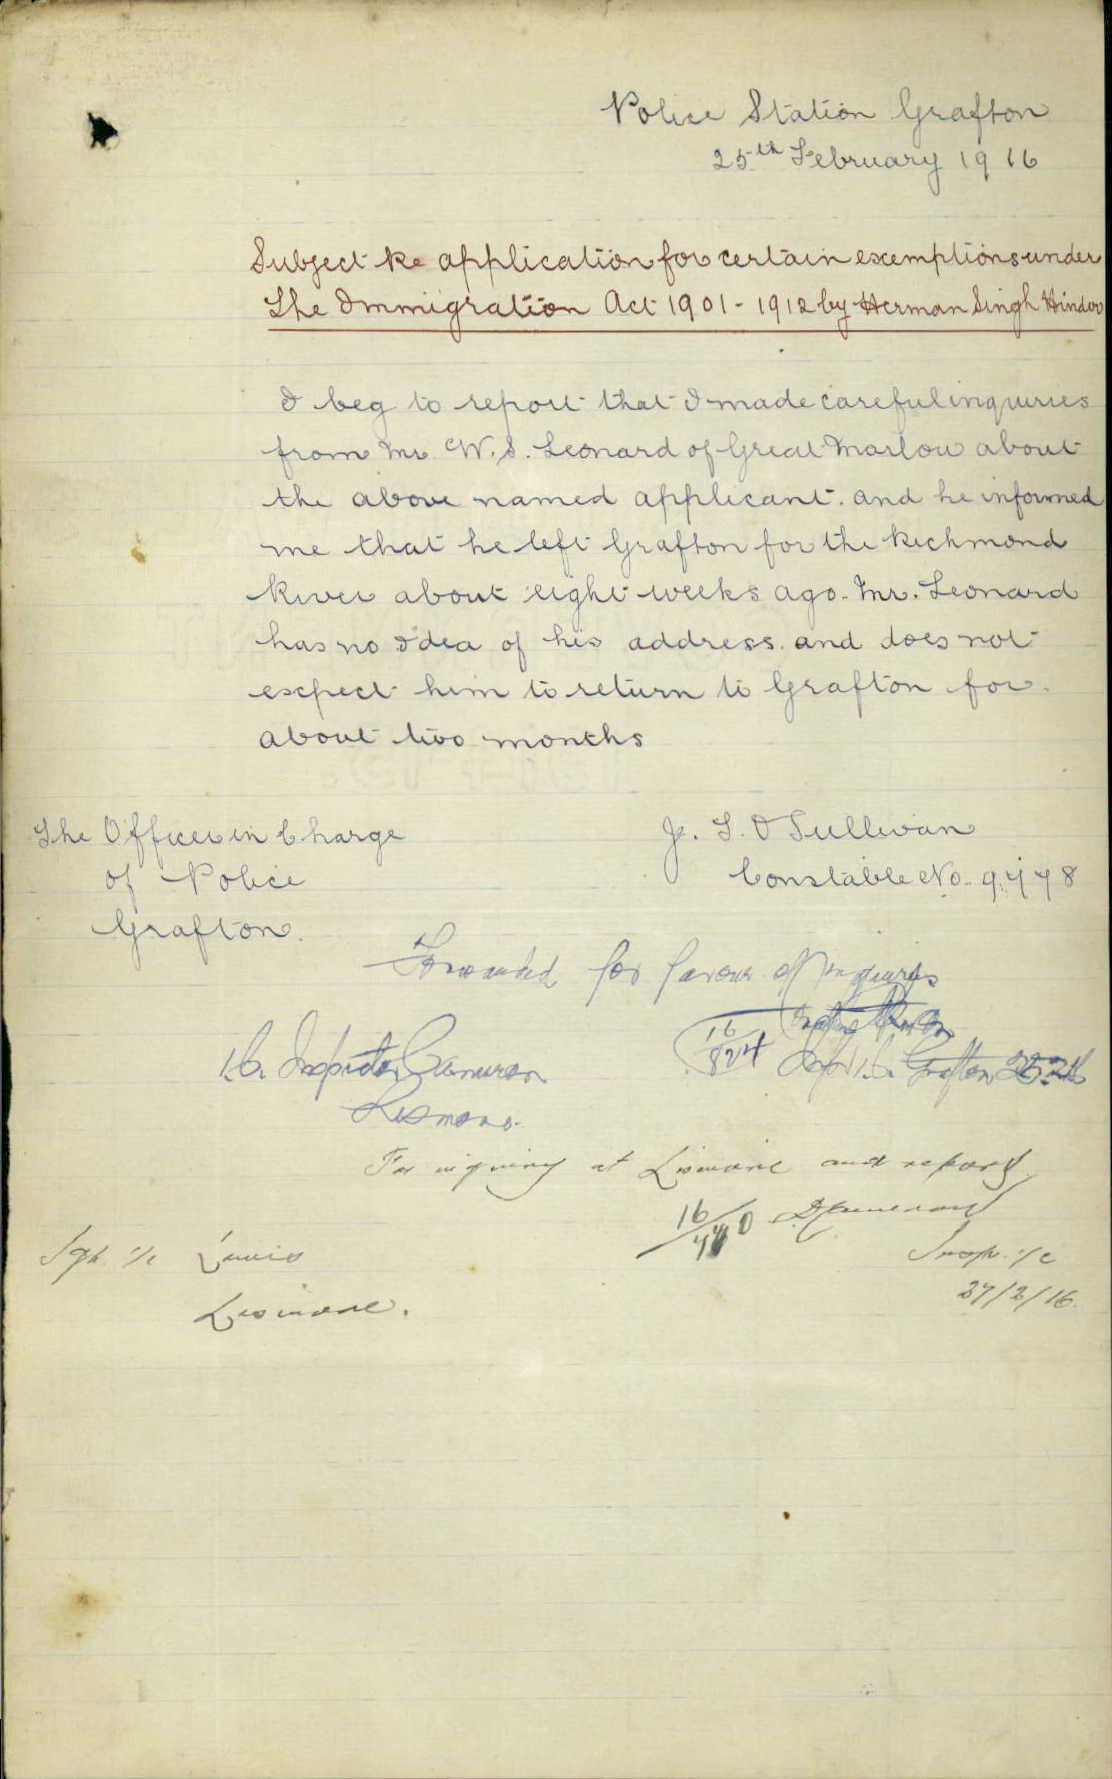 Police Station Grafton
25th February 1916
Subject Re application for certain exemptions under
The Immigration Act 1901-1912 by Herman Singh Hindoo
I beg to report that I made careful inquiries
from Mr. W. S. Leonard of Great Marlow about
the above named applicant. and he informed
me that he left Grafton for the Richmond
River about eight weeks ago. Mr. Leonard
has no idea of his address. and does not
expect him to return to Grafton for
about two months
J. T. O Sullivan
Constable No. 9478
The Officer in Charge
of Police
Grafton.
Forwarded for favour of inquiries
16/824
Grafton 25.2.16
I.C. Inspector Cameron
Lismore.
For inquiry at Lismore and report
16/440
Cameron
Insp. i/c
27/2/16
Sgt. i/c
Lismore.